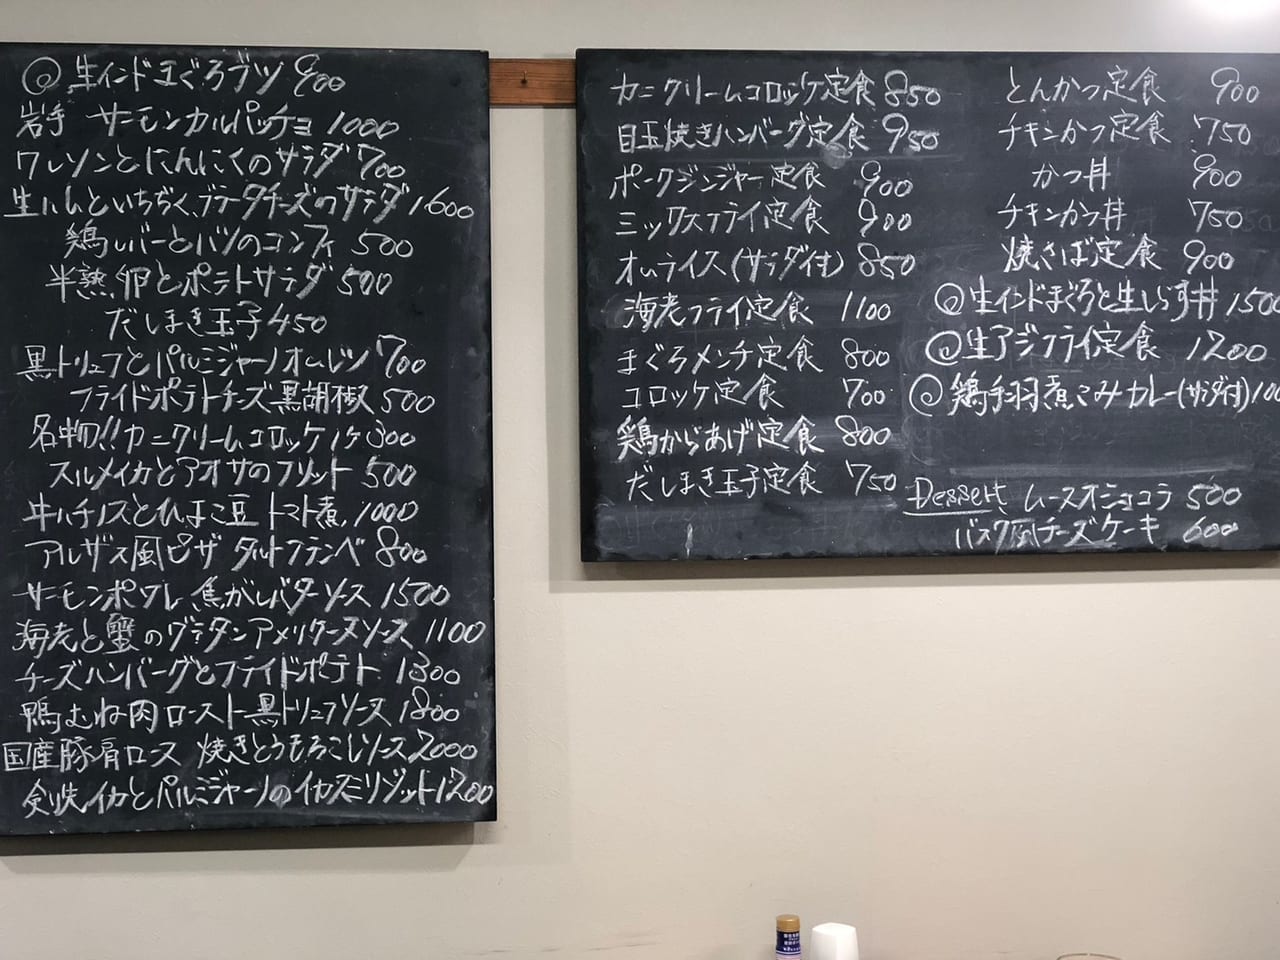 ◎生インドまぐろブツ 900
岩手 サーモンカルパッチョ 1000
クレソンとにんにくのサラダ 700
生ハムといちぢく、ブラータチーズのサラダ 1600
鶏レバーとハツのコンフィ 500
半熟卵とポテトサラダ 500
だしまき玉子 450
黒トリュフとパルミジャーノオムレツ 700
フライドポテトチーズ黒胡椒 500
名物!!カニクリームコロッケ1ケ 300
スルメイカとアオサのフリット 500
牛ハチノスとひよこ豆 トマト煮 1000
アルザス風ピザ タルトフランベ 800
サーモンポワレ 焦がしバターソース 1500
海老と蟹のグラタンアメリケーヌソース 1100
チーズハンバーグとフライドポテト 1300
鴨むね肉ロースト黒トリュフソース 1800
国産豚肩ロース 焼きとうもろこしソース 2000
剣先イカとパルミジャーノのイカスミリゾット 1200
カニクリームコロッケ定食 850
目玉焼きハンバーグ定食 950
ポークジンジャー定食 900
ミックスフライ定食 900
オムライス(サラダ付) 850
海老フライ定食 1100
まぐろメンチ定食 800
コロッケ定食 700
鶏からあげ定食 800
だしまき玉子定食 750
とんかつ定食 900
チキンかつ定食 750
かつ丼 900
チキンかつ丼 750
焼さば定食 900
◎生インドまぐろと生しらす丼 1500
◎生アジフライ定食 1200
◎鶏手羽煮こみカレー(サラダ付)
Dessert ムースオショコラ 500
バスク風チーズケーキ 600